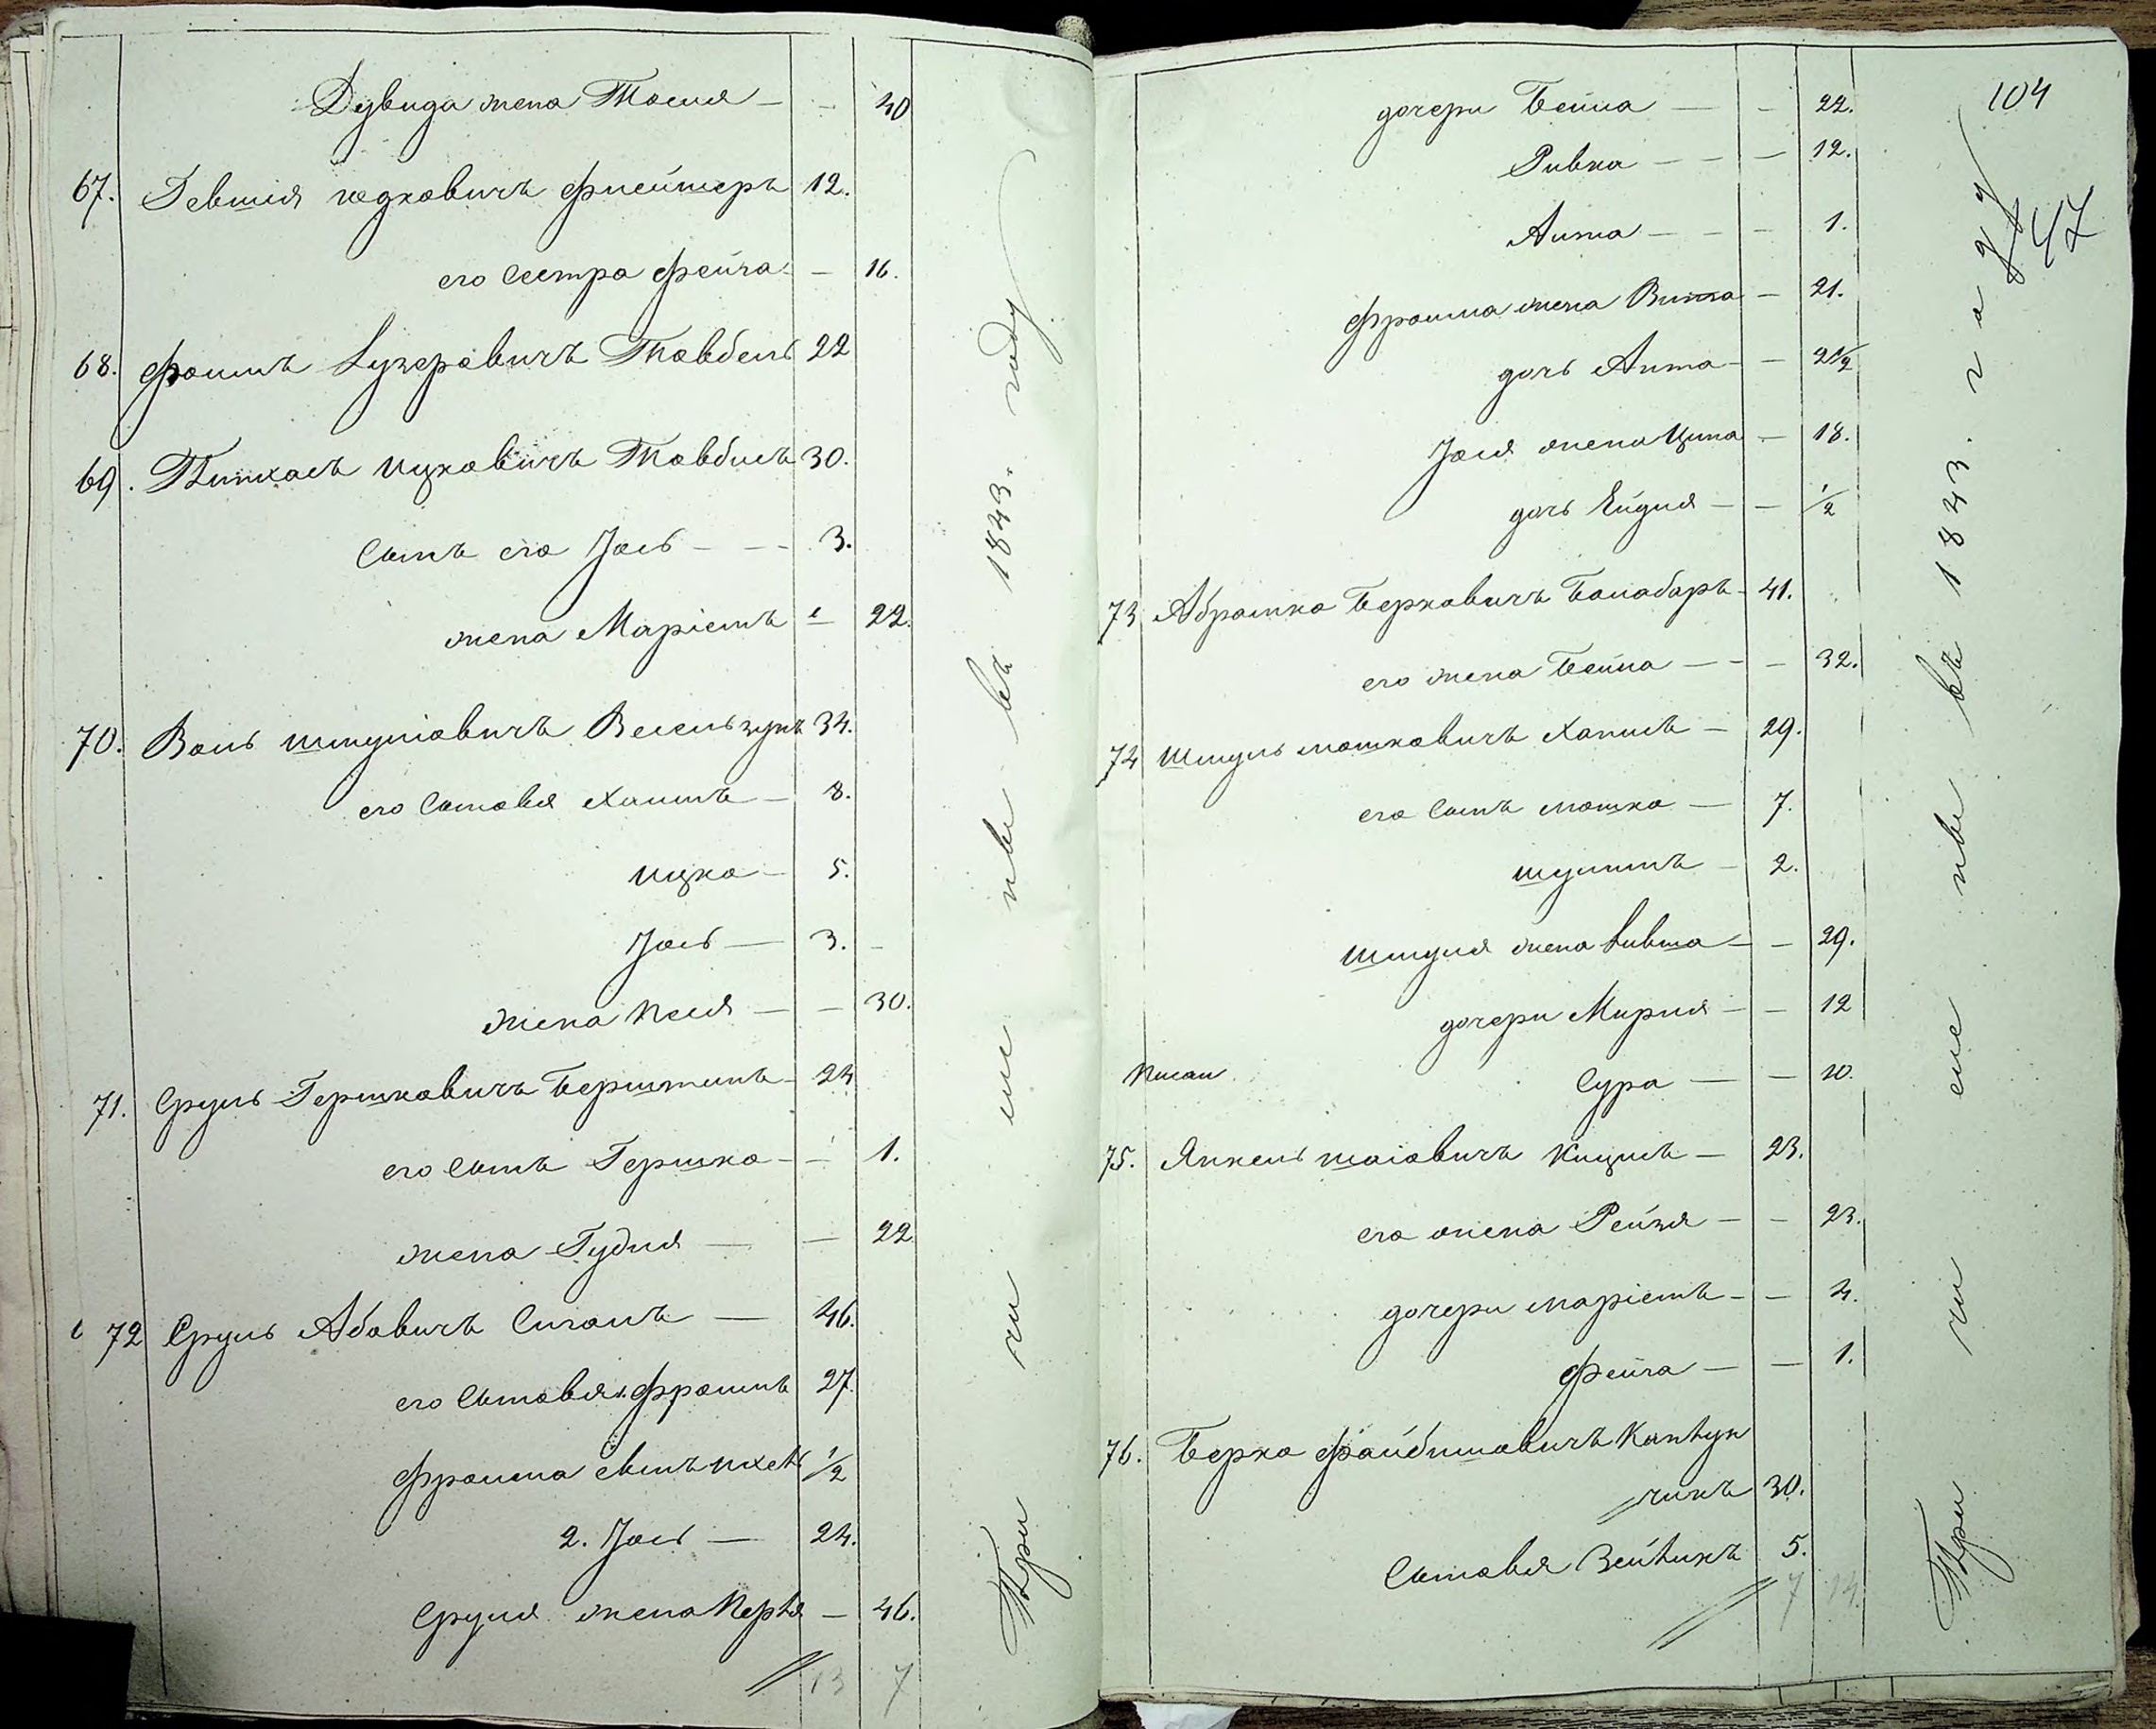 Дувида жена Тосия — — 40
67. Гевшія юдковичъ Флейшеръ 12.
его Сестра Фейга — — 16.
68. Фроимъ Лузеровичъ Товбель 22
69. Пинхасъ ицковичъ Товбисъ 30.
Сынъ его Іось — — 3.
жена Маріемъ — 22.
70. Воль шмуліовичъ 34.
его Сыновья Хаимъ — 8.
ицко — 5.
Іось — 3. —
жена песя — — 30.
71. Сруль Гершковичъ Берштинъ — 24
его Сынъ Гершко — — 1.
жена Гудля — — 22
72 Сруль Абовичъ Сиганъ — 46.
его Сыновья 1. Фроимъ 27.
Фроима сынъ 1/2
2. Іось — 24.
Сруля жена 46.
13 7
При ли еи вы въ 1843. году
104
47
дочери Бейла — — 22.
Ривка — — — 12.
Анта — — — 1.
Фроима жена — 21.
дочь Анта — — 2 1/2
Іося жена Ципа — 18.
дочь Ейдля — — 1/2
73 Абрамко Берковичъ Балабаръ — 41.
его жена Бейла — — — 32.
74 Шмуль мошковичъ Хаписъ — 29.
его Сынъ мошко — 7.
шулимъ — 2.
Шмуля жена Ливша — — 29.
дочери Мирля — — 12
Сура — — 10.
75. Янкель шаіовичъ Кицисъ — 23.
его жена Рейзя — — 23.
дочери маріемъ — — 4.
Фейга — — 1.
76. Берко Файбишовичъ
чикъ 30.
Сыновья 5.
7 14
При 1843. году